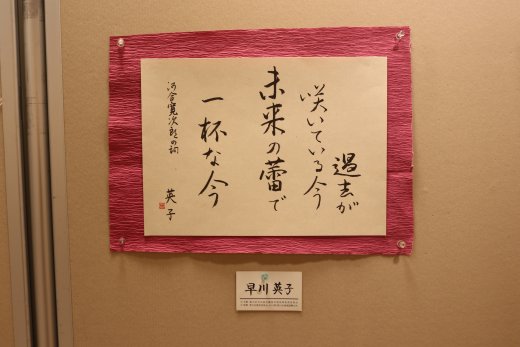 過去が
咲いている今
未来の蕾で
一杯な今
河合寛次郎の詞
英子
早川英子